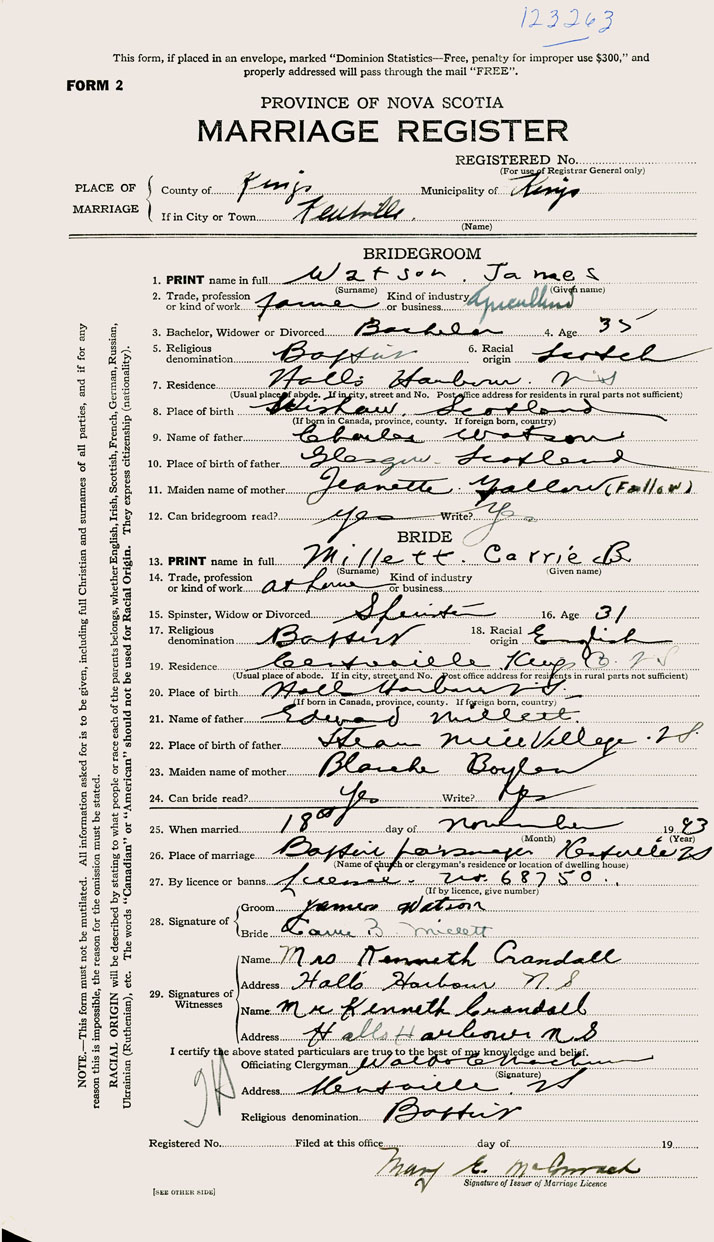 123263
This form, if placed in an envelope, marked "Dominion Statistics—Free, penalty for improper use $300," and
properly addressed will pass through the mail "FREE".
FORM 2
PROVINCE OF NOVA SCOTIA
MARRIAGE REGISTER
REGISTERED No.
(For use of Registrar General only)
PLACE OF MARRIAGE
County of Kings Municipality of Kings
If in City or Town Kentville.
(Name)
BRIDEGROOM
1. PRINT name in full Watson. James
(Surname) (Given name)
2. Trade, profession or kind of work farmer Kind of industry or business Agricultural
3. Bachelor, Widower or Divorced Bachelor 4. Age 35
5. Religious denomination Baptist 6. Racial origin Scotch
7. Residence Halls Harbour. N S
(Usual place of abode. If in city, street and No. Post office address for residents in rural parts not sufficient)
8. Place of birth Wishaw, Scotland
(If born in Canada, province, county. If foreign born, country)
9. Name of father Charles Watson
10. Place of birth of father Glasgow. Scotland
11. Maiden name of mother Jeanette Fallow (Fallow)
12. Can bridegroom read? yes Write? Yes
BRIDE
13. PRINT name in full Millett. Carrie B
(Surname) (Given name)
14. Trade, profession or kind of work at home Kind of industry or business
15. Spinster, Widow or Divorced Spinster 16. Age 31
17. Religious denomination Baptist 18. Racial origin English
19. Residence Centreville Kings Co. N S
(Usual place of abode. If in city, street and No. Post office address for residents in rural parts not sufficient)
20. Place of birth Hall Harbour N.S.
(If born in Canada, province, county. If foreign born, country)
21. Name of father Edward Millett.
22. Place of birth of father Steam Mill Village. N S.
23. Maiden name of mother Blanche Boylen
24. Can bride read? Yes Write? Yes
25. When married 18th day of November 1943
(Month) (Year)
26. Place of marriage Baptist parsonage Kentville N S
(Name of church or clergyman's residence or location of dwelling house)
27. By licence or banns License. No. 68750.
(If by licence, give number)
28. Signature of
Groom James Watson
Bride Carrie B. Millett
29. Signatures of Witnesses
Name Mrs Kenneth Crandall
Address Halls Harbour N. S
Name Mr Kenneth Crandall
Address Halls Harbour N S
I certify the above stated particulars are true to the best of my knowledge and belief.
Officiating Clergyman
(Signature)
Address Kentville. N S
Religious denomination Baptist
Registered No. Filed at this office day of 19
Mary E. McCormack
Signature of Issuer of Marriage Licence
[SEE OTHER SIDE]
NOTE.—This form must not be mutilated. All information asked for is to be given, including full Christian and surnames of all parties, and if for any
reason this is impossible, the reason for the omission must be stated.
RACIAL ORIGIN will be described by stating to what people or race each of the parents belongs, whether English, Irish, Scottish, French, German, Russian,
Ukrainian (Ruthenian), etc. The words "Canadian" or "American" should not be used for Racial Origin. They express citizenship (nationality).